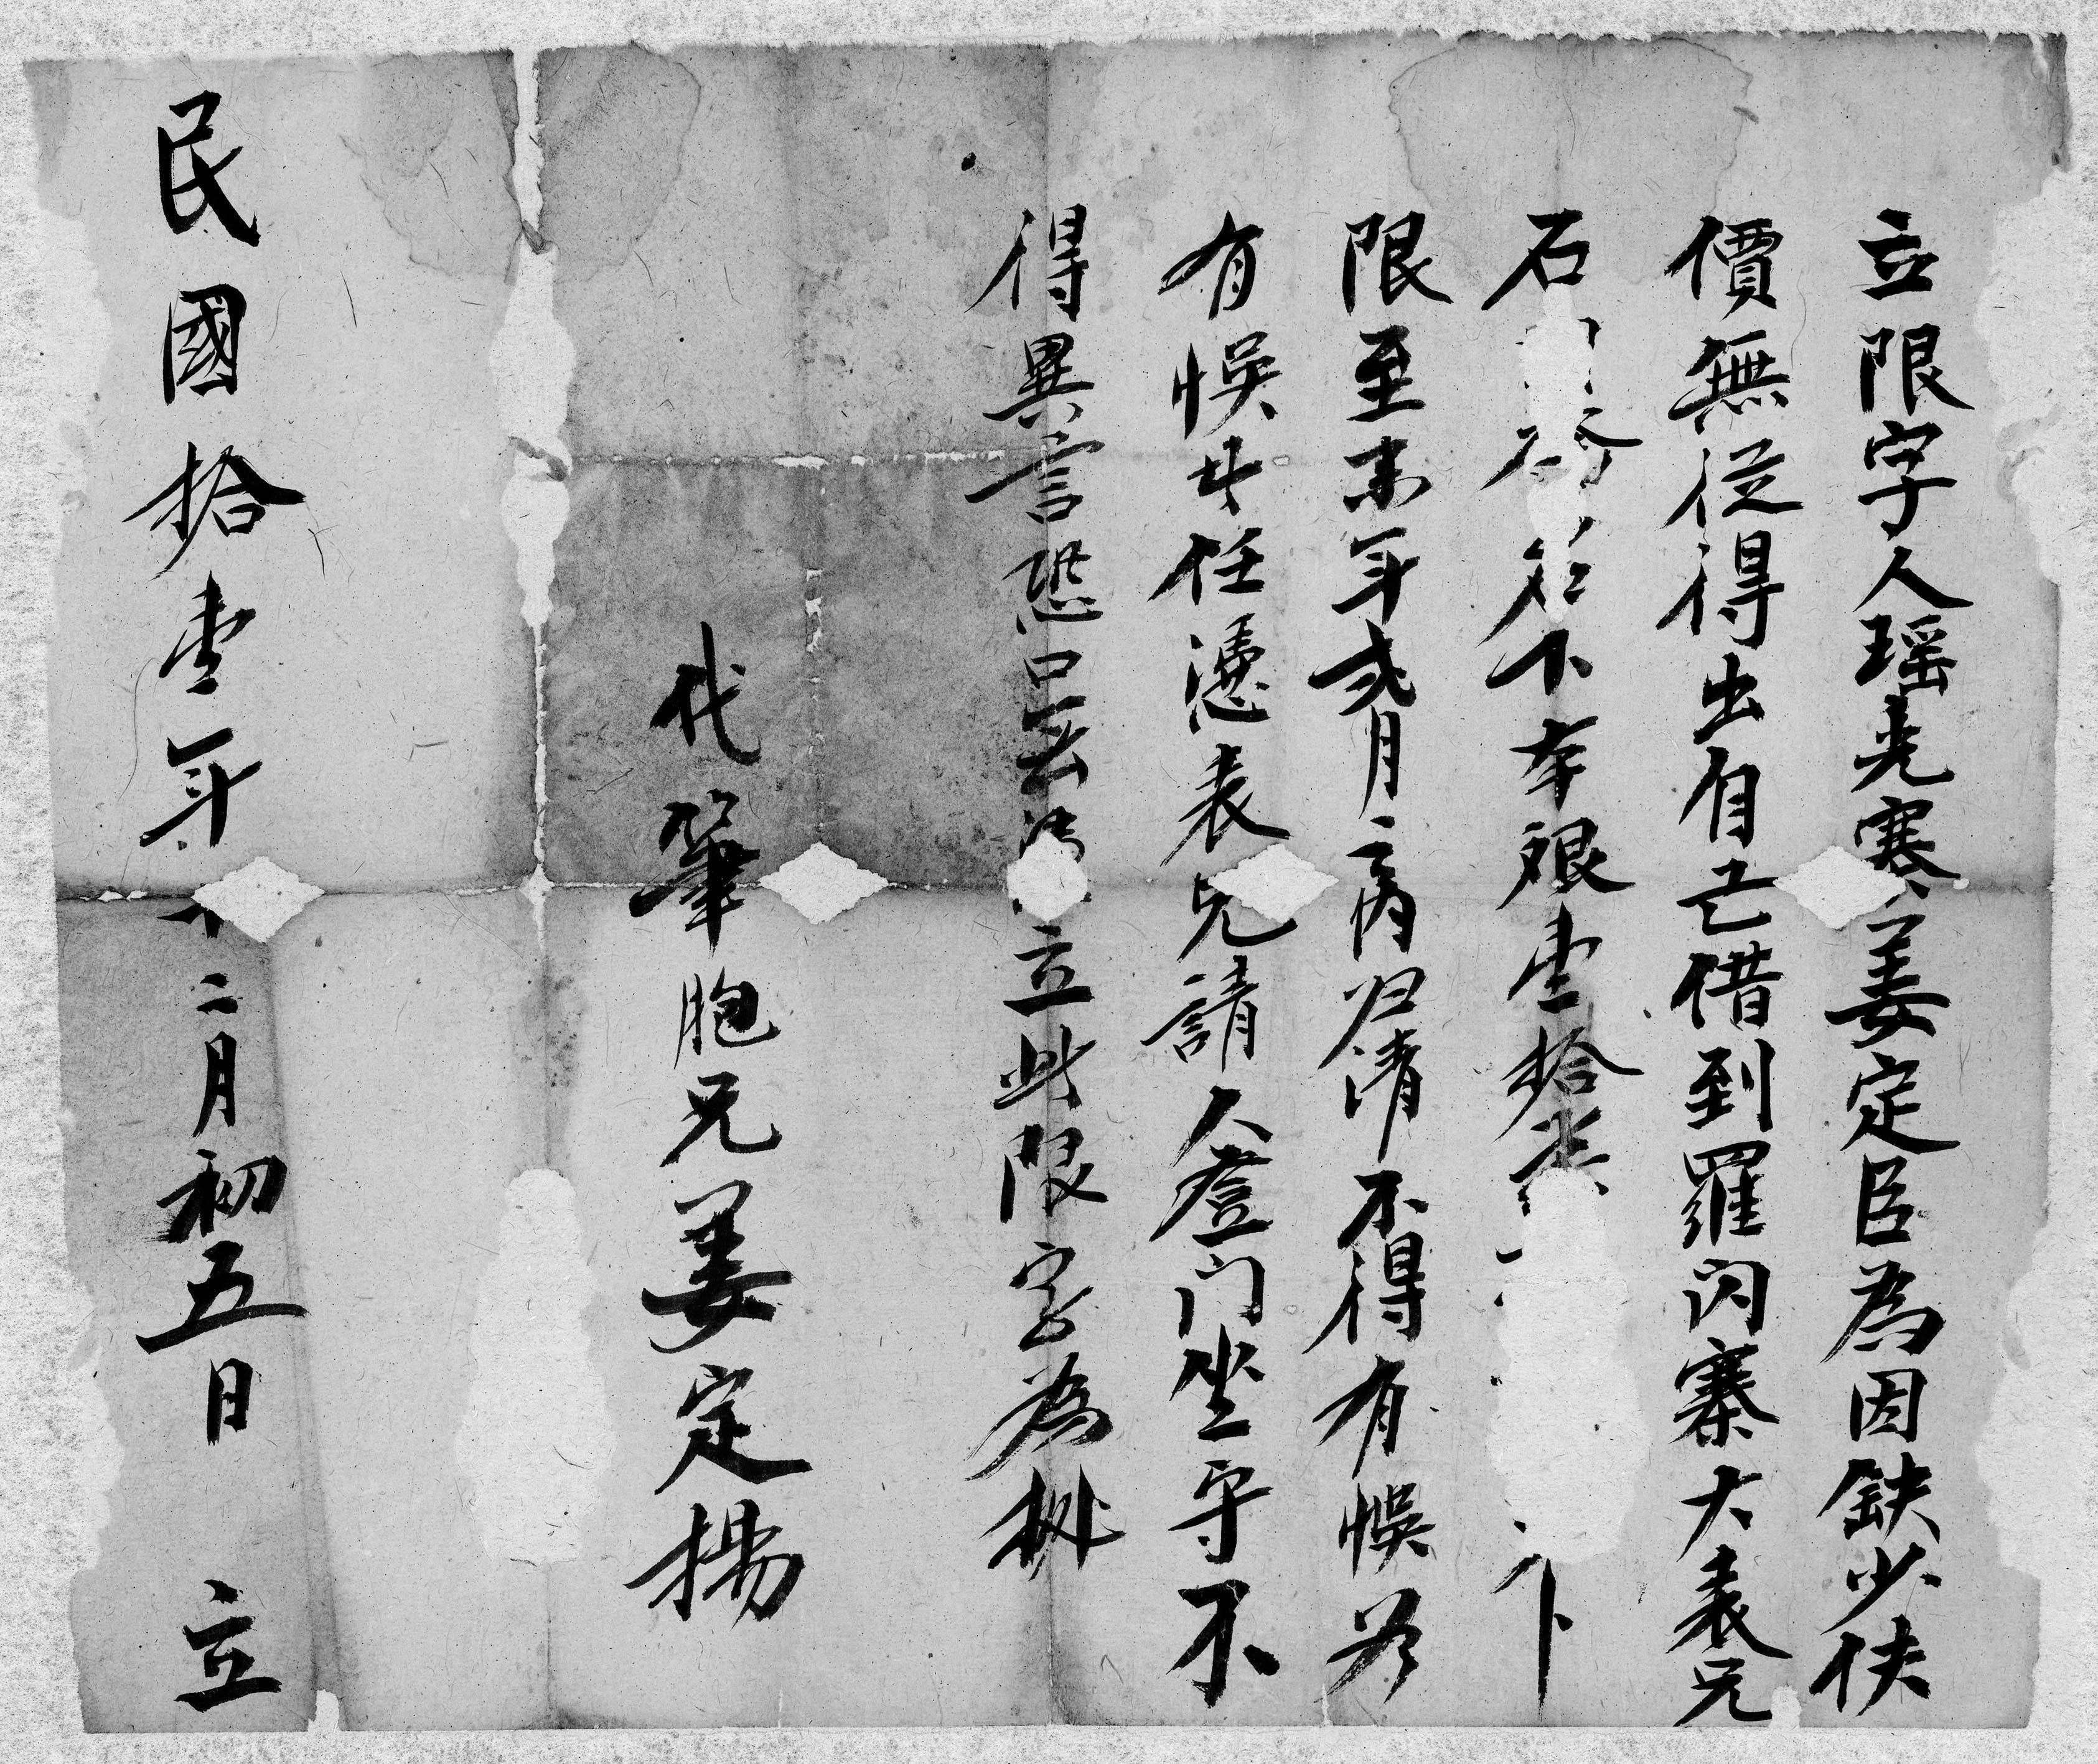 立限字人瑶光寨姜定臣為因缺少伕
價無從得出自己借到羅闪寨大表兄
石 名下本艰壹拾 下
限至来年贰月之内归清不得有悞若
有悞廾任憑表兄請人登门坐守不
得異言恐口無 立此限字為拠
代筆胞兄姜定揚
民國拾壹年十二月初五日 立